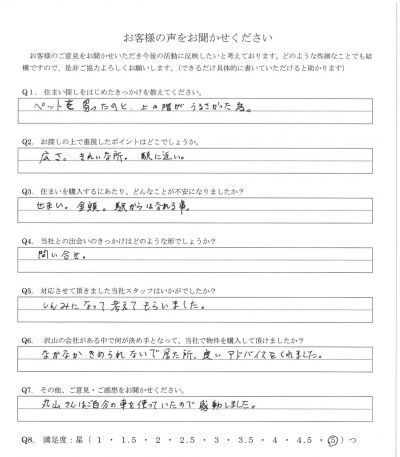 お客様の声をお聞かせください
お客様のご意見をお聞かせいただき今後の活動に反映したいと考えております。どのような些細なことでも結
構ですので、是非ご協力よろしくお願いします。（できるだけ具体的に書いていただけると助かります）
Q1. 住まい探しをはじめたきっかけを教えてください。
ペットを買ったのと、上の階がうるさかった為。
Q2. お探しの上で重視したポイントはどこでしょうか。
広さ。きれいな所。駅に近い。
Q3. 住まいを購入するにあたり、どんなことが不安になりましたか？
せまい。金額。駅からはなれる事。
Q4. 当社との出会いのきっかけはどのような形でしょうか？
問い合せ。
Q5. 対応させて頂きました当社スタッフはいかがでしたか？
しんみになって考えてもらいました。
Q6. 沢山の会社がある中で何が決め手となって、当社で物件を購入して頂けましたか？
なかなかきめられないで居た所、良いアドバイスをくれました。
Q7. その他、ご意見・ご感想をお聞かせください。
丸山さんはご自分の車を使っていたので感動しました。
Q8. 満足度：星（ 1 ・ 1.5 ・ 2 ・ 2.5 ・ 3 ・ 3.5 ・ 4 ・ 4.5 ・ 5 ）つ